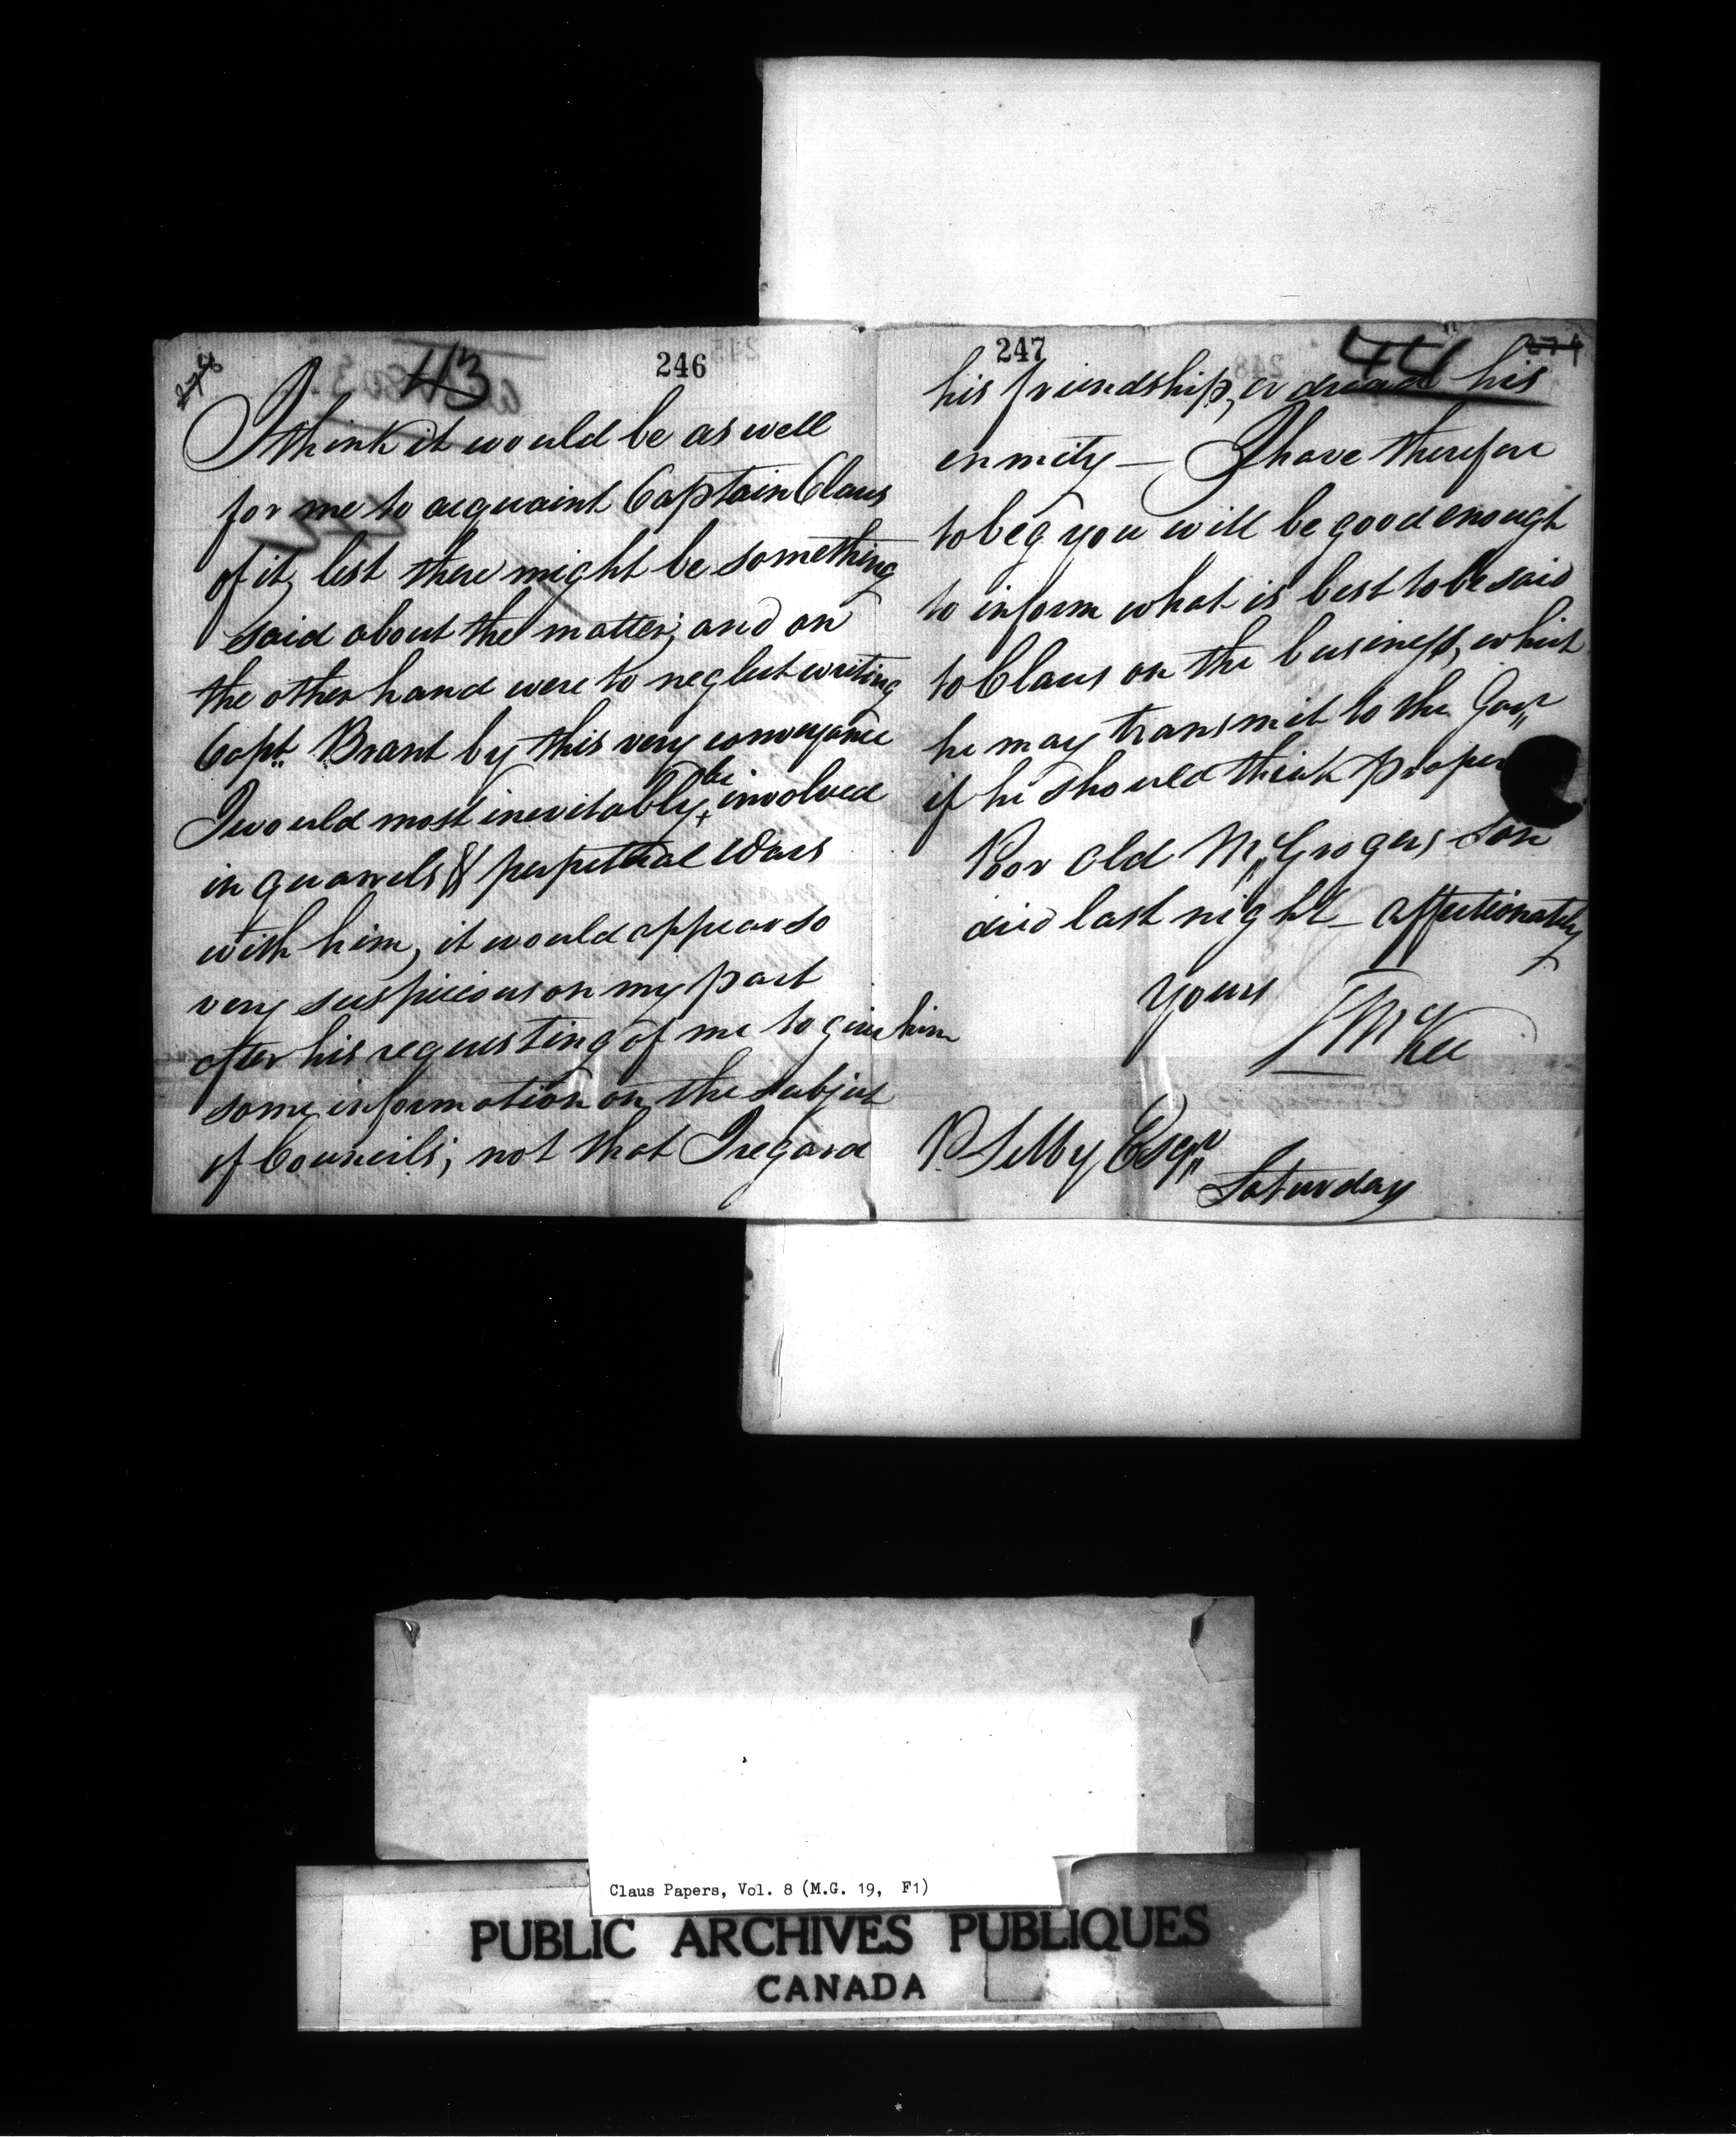 43
246
I think it would be as well
for me to acquaint Captain Claus
of it, lest there might be something
said about the matter, and on
the other hand were to neglect writing
Capt. Brant by this very conveyance
I would most inevitably be involved
in quarrels & perpetual Wars
with him, it would appear so
very suspicious on my part
after his requesting of me to give him
some information on the subject
of Councils; not that I regard
247
44
his friendship, or dread his
enmity — I have therefore
to beg you will be good enough
to inform what is best to be said
to Claus on the business, which
he may transmit to the Govr
if he should think proper
Poor old McGrogers Son
died last night — affectionately
Yours
TMcKee
P Selby Esqr
Saturday
Claus Papers, Vol. 8 (M.G. 19, F1)
PUBLIC ARCHIVES PUBLIQUES
CANADA